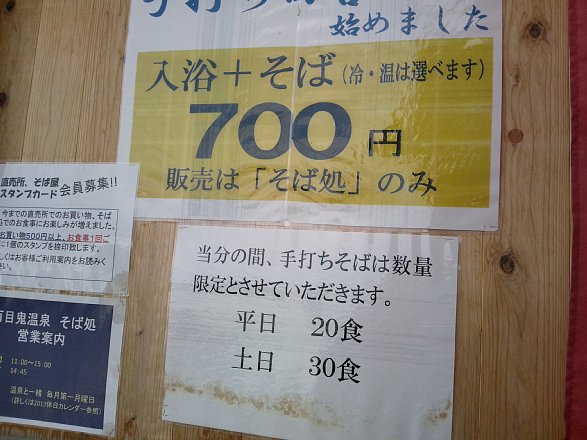 始めました
入浴＋そば（冷・温は選べます）
700円
販売は「そば処」のみ
直売所、そば屋
スタンプカード 会員募集!!
今までの直売所でのお買い物、そば
でのお食事にお楽しみが増えました。
お買い物500円以上、お食事1回ご
に1個のスタンプを捺印致します。
しくはお客様ご利用案内をお読みく
さい。
当分の間、手打ちそばは数量
限定とさせていただきます。
平日 20食
土日 30食
百目鬼温泉 そば処
営業案内
11:00～15:00
14:45
温泉と一緒 毎月第一月曜日
（詳しくは2013休日カレンダー参照）